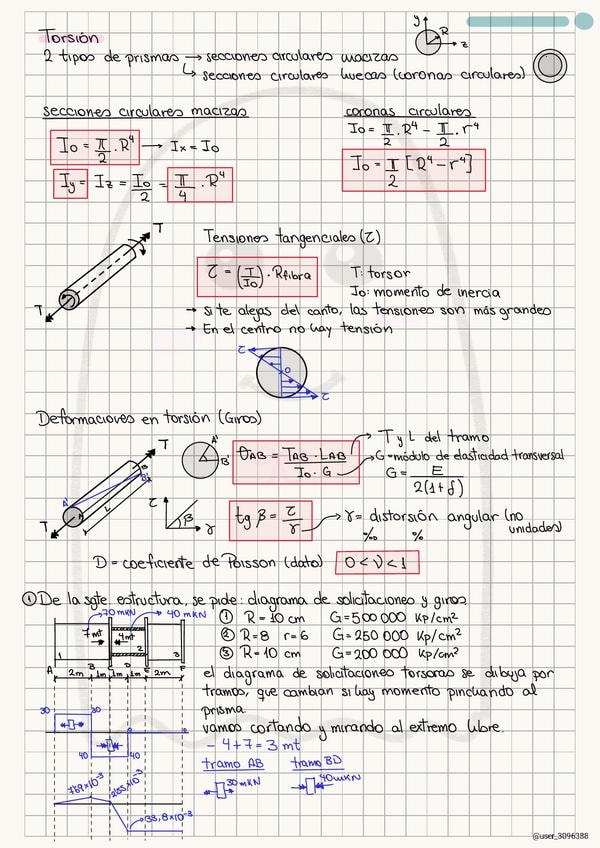 y
R
z
Torsión
2 tipos de prismas → secciones circulares macizas
↳ secciones circulares huecas (coronas circulares)
secciones circulares macizas
coronas circulares
Io = π/2 . R⁴ → Ix = Io
Io = π/2 . R⁴ - π/2 . r⁴
Iy = Iz = Io/2 = π/4 . R⁴
Io = π/2 [R⁴ - r⁴]
T
T
Tensiones tangenciales (τ)
τ = (T/Io) . Rfibra
T: torsor
Io: momento de inercia
→ Si te alejas del canto, las tensiones son más grandes
→ En el centro no hay tensión
τ
O
τ
Deformaciones en torsión (Giros)
T
A'
B
B'
L
T
A'
B'
θAB = TAB . LAB / Io . G
→ T y L del tramo
→ G = módulo de elasticidad transversal
G = E / 2(1+f)
τ
β
γ
tg β = τ/γ
→ γ = distorsión angular (no unidades)
‰ %
D = coeficiente de Poisson (dato)
0 < ν < 1
① De la sgte estructura, se pide: diagrama de solicitaciones y giros
70 mKN
40 mKN
7mt
4mt
1
2
3
A
B
D
2m
1m
1m
1m
2m
① R = 10 cm G = 500 000 Kp/cm²
② R = 8 r = 6 G = 250 000 Kp/cm²
③ R = 10 cm G = 200 000 Kp/cm²
el diagrama de solicitaciones torsoras se dibuja por
tramos, que cambian si hay momento pinchando al
prisma.
vamos cortando y mirando al extremo libre.
- 4 + 7 = 3 mt
tramo AB
tramo BD
30 mKN
40 mKN
30
30
40
40
0
33,8x10⁻³
@user_3096388